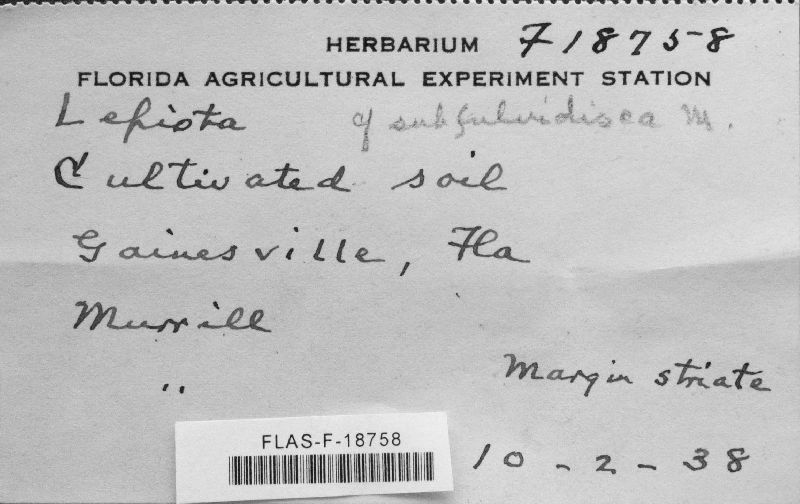 HERBARIUM F 18758
FLORIDA AGRICULTURAL EXPERIMENT STATION
Lepiota cf subfulvidisca M.
Cultivated soil
Gainesville, Fla
Murrill
" Margin striate
FLAS-F-18758
10-2-38